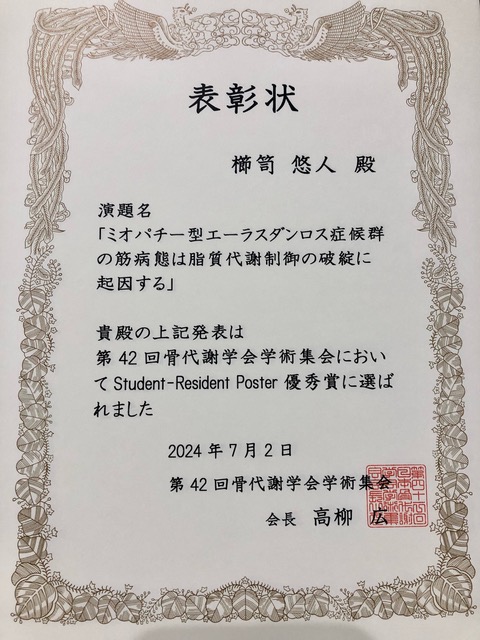 表彰状
櫛笥 悠人 殿
演題名
「ミオパチー型エーラスダンロス症候群
の筋病態は脂質代謝制御の破綻に
起因する」
貴殿の上記発表は
第42回骨代謝学会学術集会におい
てStudent-Resident Poster 優秀賞に選ば
れました
2024年7月2日
第42回骨代謝学会学術集会
会長 高柳 広